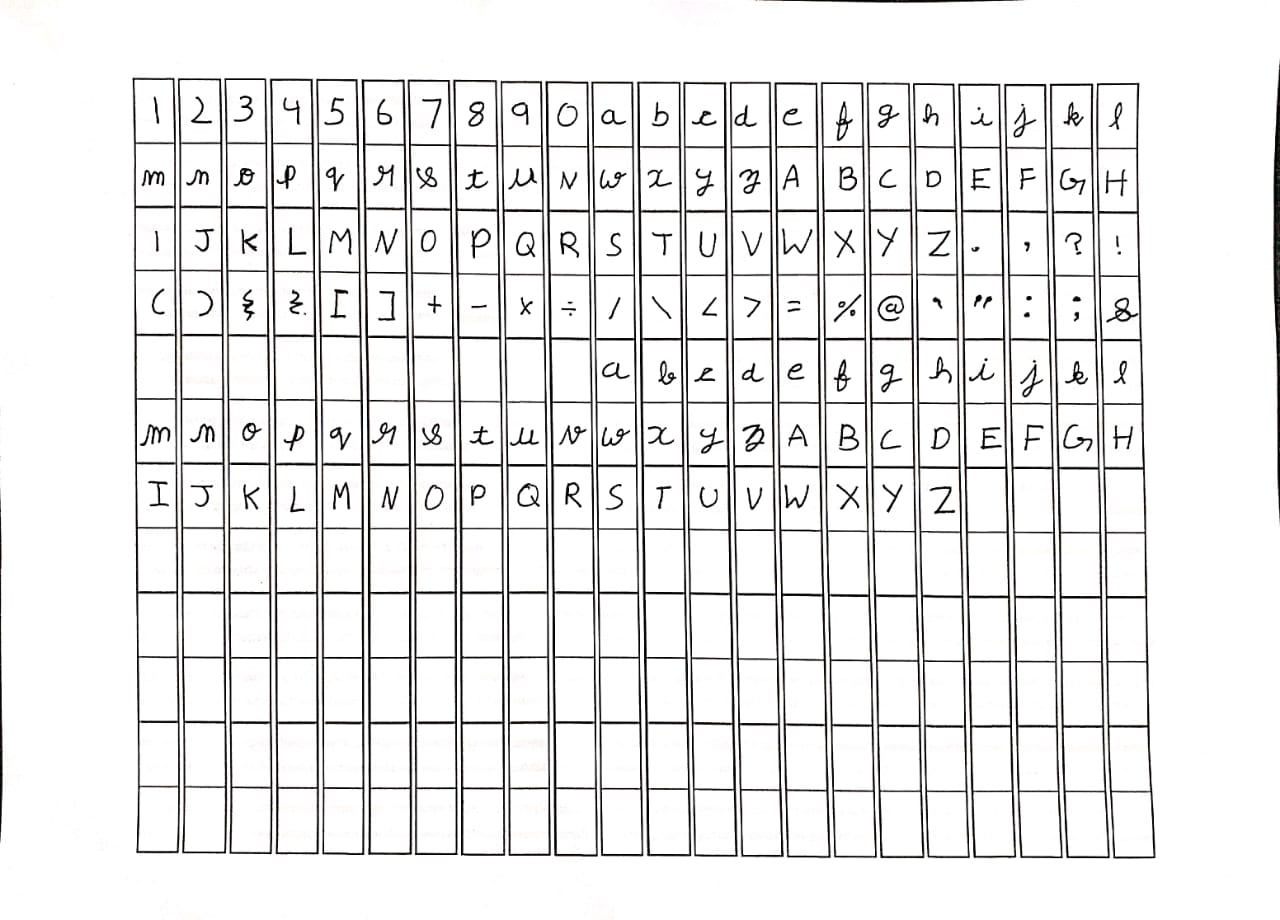 1 2 3 4 5 6 7 8 9 0 a b c d e f g h i j k l
m n o p q r s t u v w x y z A B C D E F G H
I J K L M N O P Q R S T U V W X Y Z . , ? !
( ) { } [ ] + - x ÷ / \ < > = % @ ' " : ; &
a b c d e f g h i j k l
m n o p q r s t u v w x y z A B C D E F G H
I J K L M N O P Q R S T U V W X Y Z